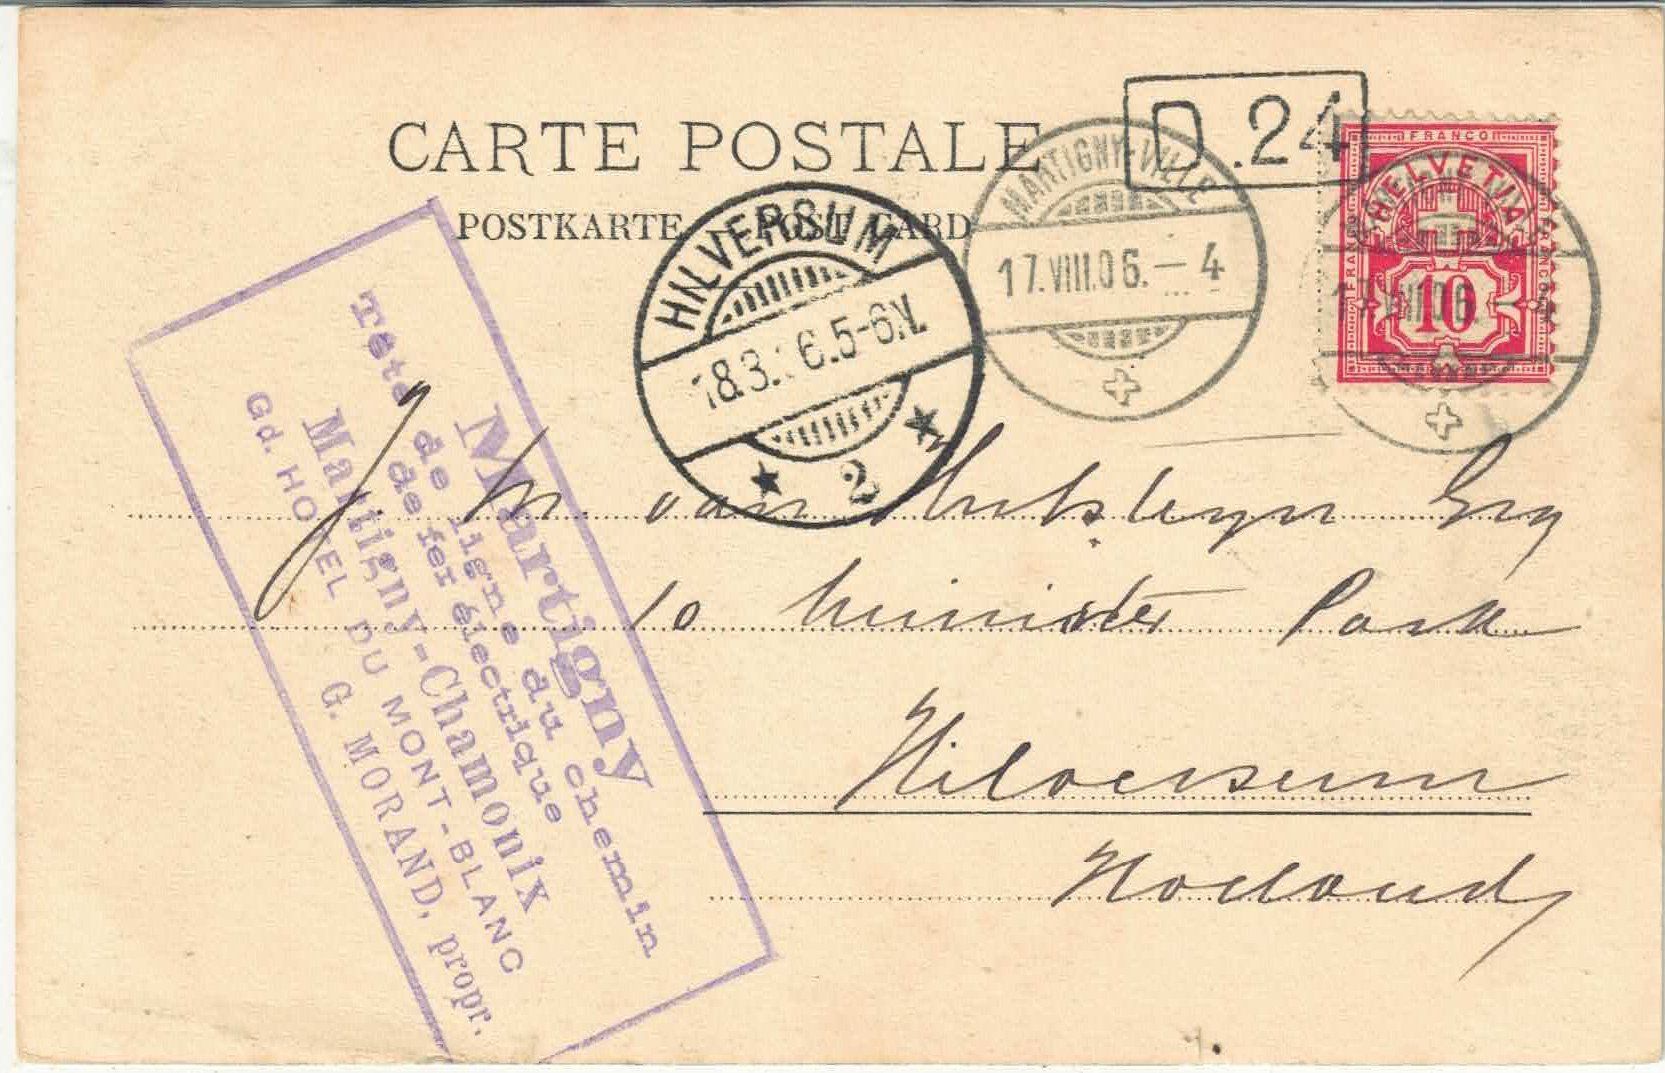 CARTE POSTALE
POSTKARTE - POST CARD
D.24
MARTIGNY-VILLE
17.VIII.06.— 4
FRANCO
HELVETIA
FRANCO
FRANCO
10
17.VIII.06.—
HILVERSUM
18.3. 6.5-6.V.
2
Martigny
Tête de ligne du chemin
de fer électrique
Martigny-Chamonix
Gd. HOTEL DU MONT-BLANC
G. MORAND, propr.
J. M. van
10 Minister Park
Hilversum
Holland